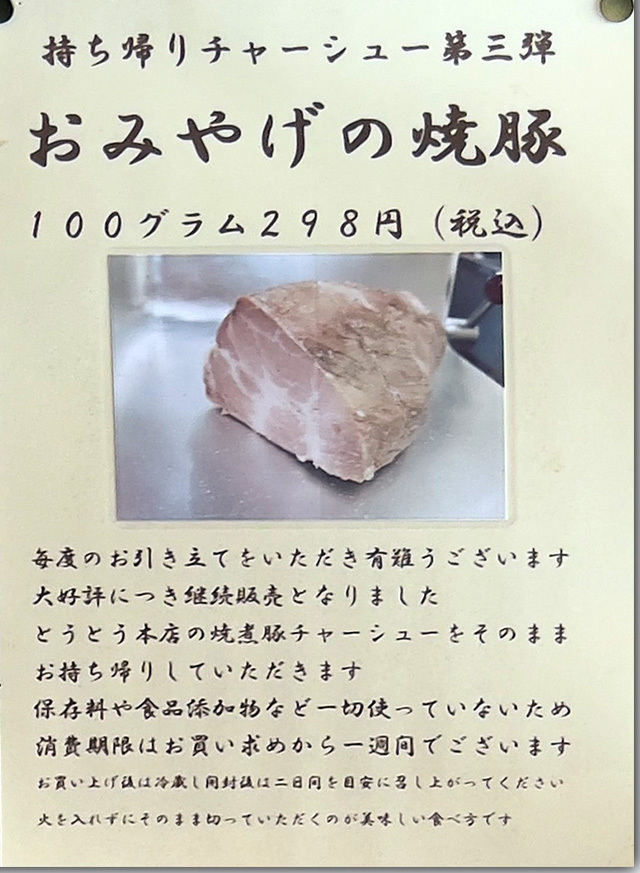 持ち帰りチャーシュー第三弾
おみやげの焼豚
100グラム298円（税込）
毎度のお引き立てをいただき有難うございます
大好評につき継続販売となりました
とうとう本店の焼煮豚チャーシューをそのまま
お持ち帰りしていただきます
保存料や食品添加物など一切使っていないため
消費期限はお買い求めから一週間でございます
お買い上げ後は冷蔵し開封後は二日間を目安に召し上がってください
火を入れずにそのまま切っていただくのが美味しい食べ方です